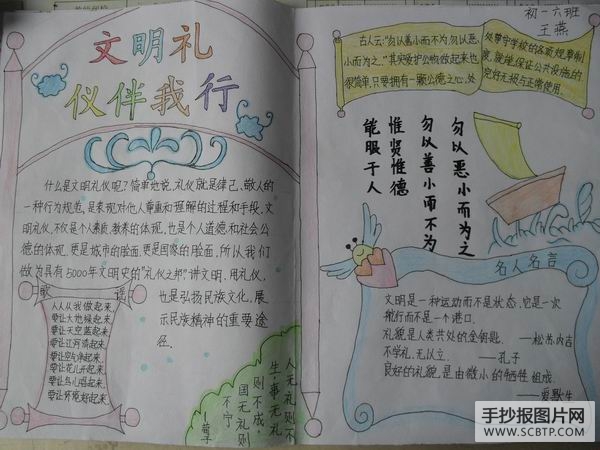 文明礼
仪伴我行
什么是文明礼仪呢?简单地说,礼仪就是律己、敬人的
一种行为规范,是表现对他人尊重和理解的过程和手段。
文明礼仪,不仅是个人素质、教养的体现,也是个人道德和社会公
德的体现。更是城市的脸面,更是国家的脸面。所以我们
做为具有5000年文明史的"礼仪之邦",讲文明、用礼仪,
也是弘扬民族文化、展
示民族精神的重要途
径.
歌 谣
人人从我做起来,
要让大地绿起来,
要让天空蓝起来,
要让江河清起来,
要让空气净起来,
要让花儿开起来,
要让鸟儿唱起来,
要让环境好起来,
人无礼则不
生,事无礼
则不成,
国无礼则
不宁
—荀子
初一六班
王燕
古人云:"勿以善小而不为,勿以恶
小而为之。"其实爱护公物做起来也
很简单,只要拥有一颗公德之心,处
处尊守学校的各项规章制
度,就能保证公共设施的
完好无损与正常使用.
勿以恶小而为之
勿以善小而不为
惟贤惟德
能服于人
名人名言
文明是一种运动而不是状态,它是一次
航行而不是一个港口.
礼貌是人类共处的金钥匙. ——松苏内吉
不学礼,无以立. ——孔子
良好的礼貌,是由微小的牺牲组成.
——爱默生
手抄报图片网
WWW.SCBTP.COM